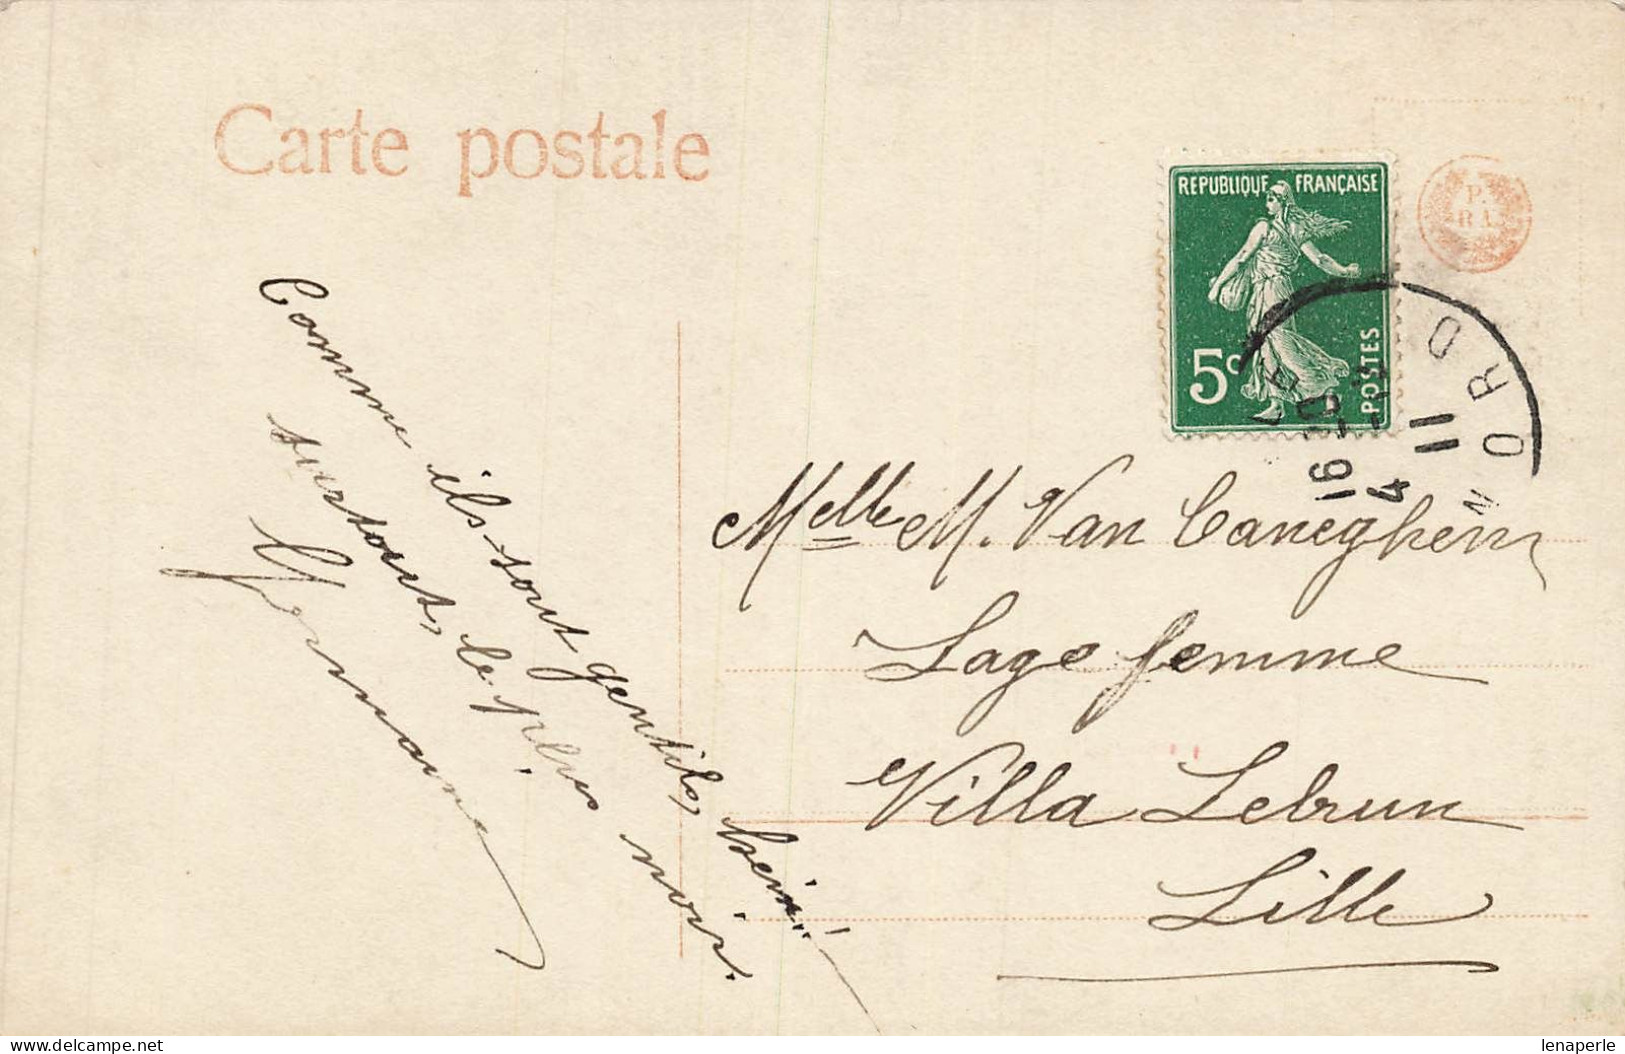 Carte postale
REPUBLIQUE FRANÇAISE
5c
POSTES
P.
RA.
NORD
16
4
11
Comme ils sont gentils, hein!!
surtout, le plus noir.
Germaine
Melle M. Van Caneghem
Sage femme
Villa Lebrun
Lille
lenaperle